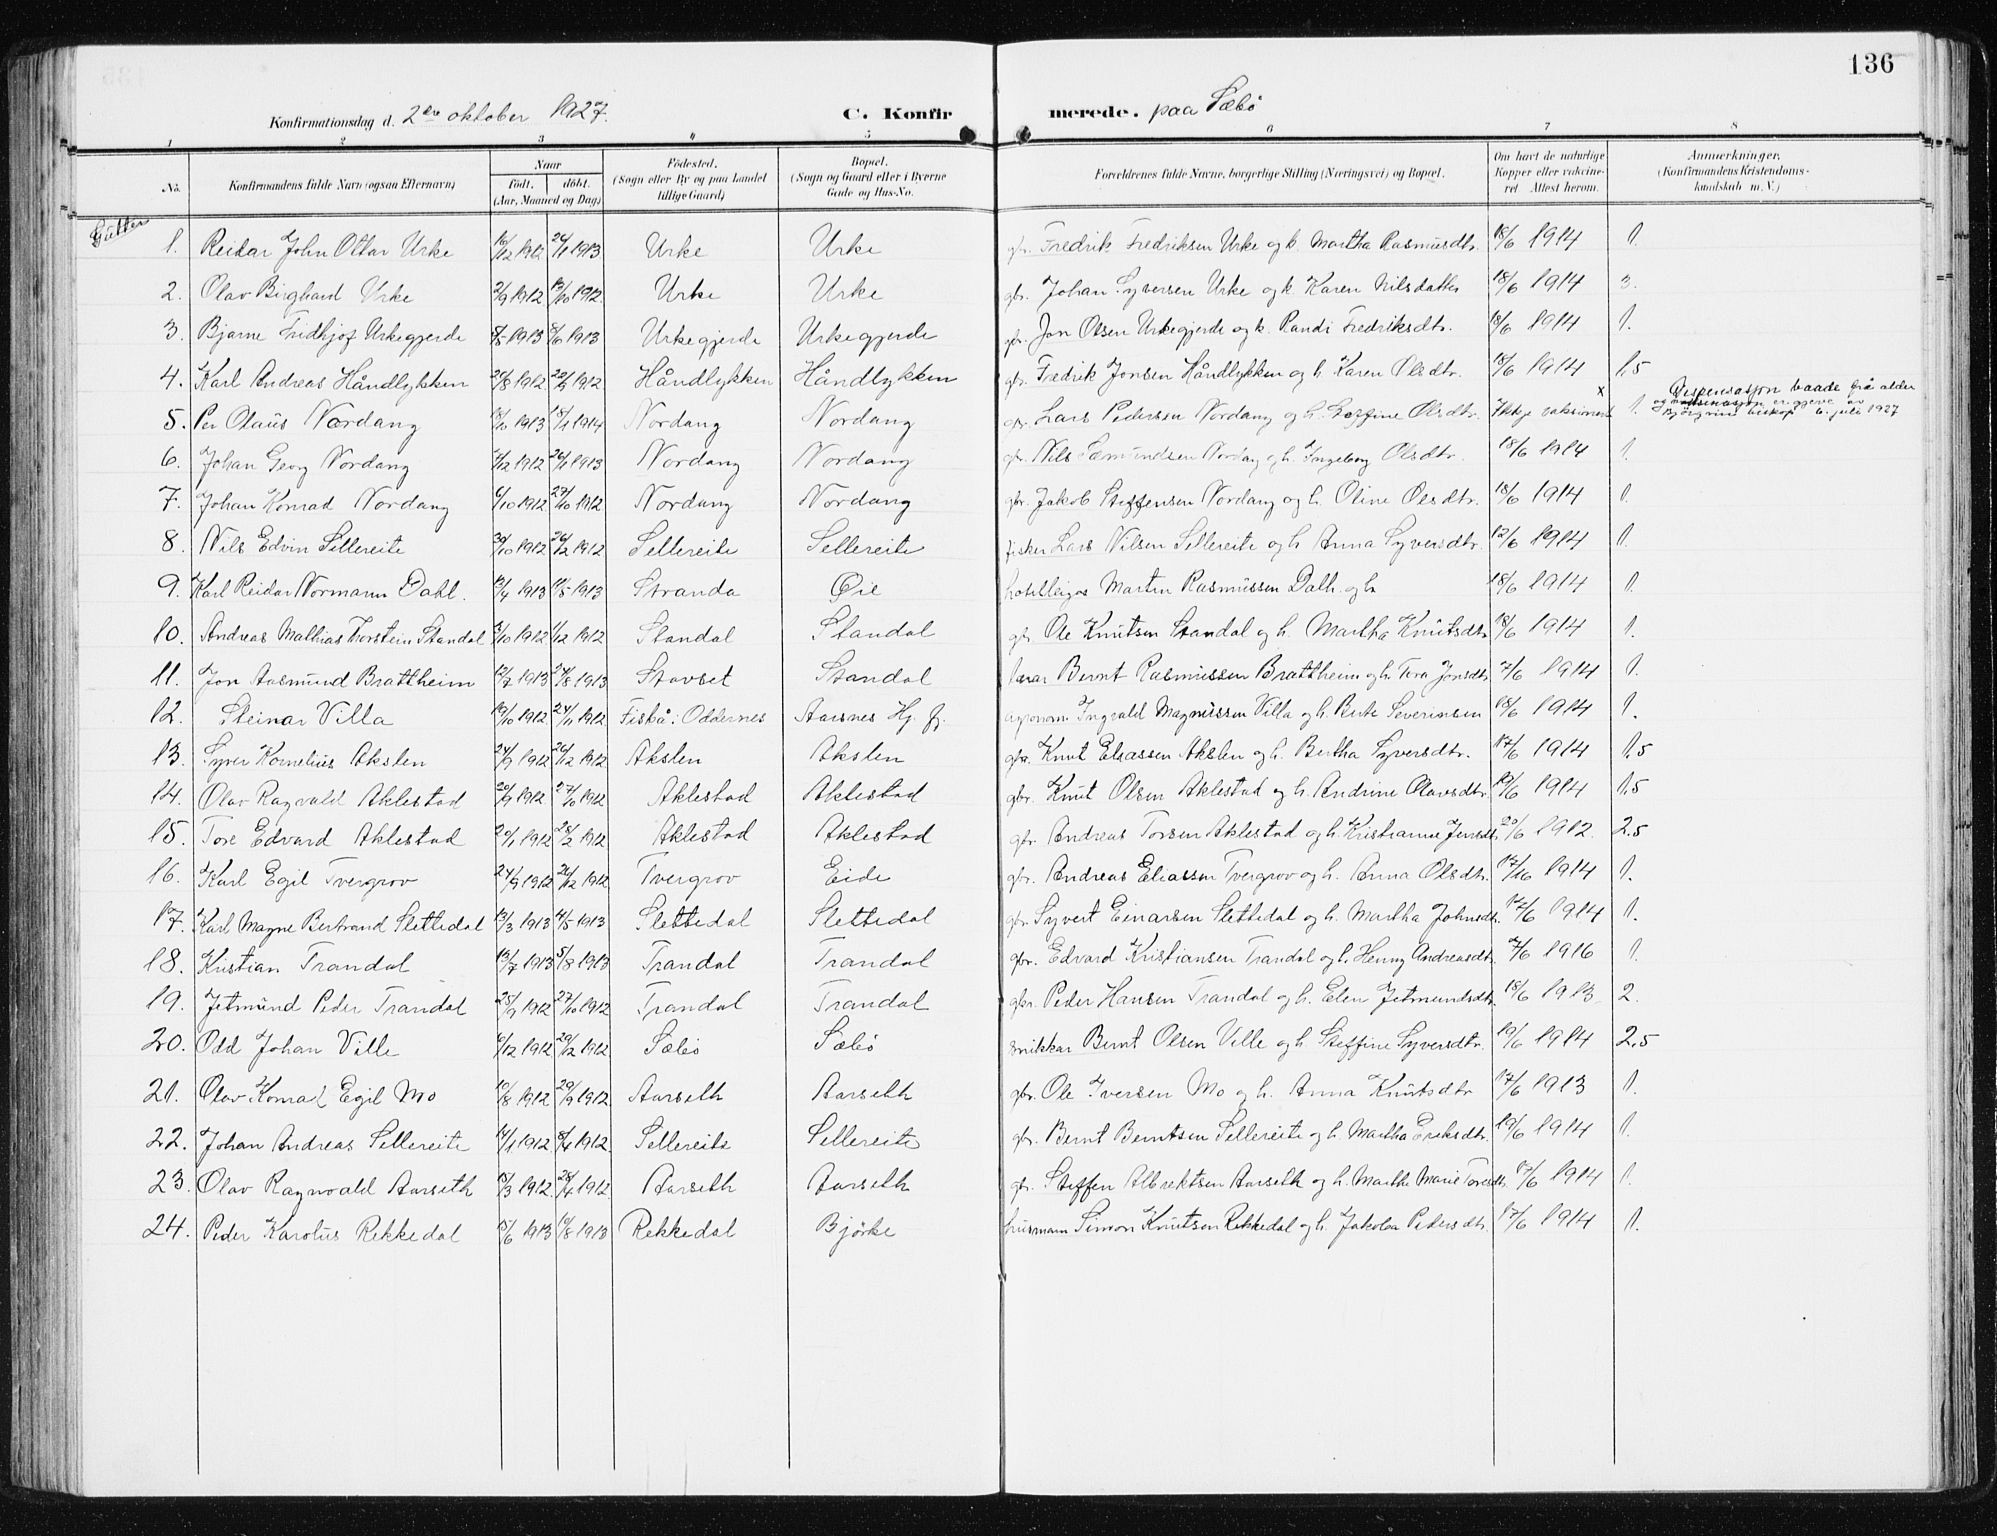 136
Konfirmationsdag d. 2den oktober 1927. C. Konfirmerede. paa Sæbö
1 2 3 4 5 6 7 8
No. Konfirmandens fulde Navn (ogsaa Efternavn) Naar födt. döbt. (Aar, Maaned og Dag) Födested. (Sogn eller By og paa Landet tillige Gaard) Bopæl. (Sogn og Gaard eller i Byerne Gade og Hus-No. Forældrenes fulde Navne, borgerlige Stilling (Næringsvei) og Bopæl. Om havt de naturlige Kopper eller vaccineret. Attest herom. Anmærkninger. (Konfirmandens Kristendomskundskab m. V.)
Gutter
1. Reidar John Ottar Urke 16/12 1912 26/1 1913 Urke Urke gbr. Fredrik Fredriksen Urke og k. Martha Rasmusdtr. 18/6 1914 1.
2. Olav Birghard Urke 2/9 1912 13/10 1912 Urke Urke gbr. Johan Syversen Urke og k. Karen Nilsdatter 18/6 1914 3.
3. Bjarne Fridthjof Urkegjerde 1913 1913 Urkegjerde Urkegjerde gbr. Jon Olsen Urkegjerde og k. Randi Fredriksdtr. 18/6 1914 1.
4. Karl Andreas Håndlykken 20/8 1912 22/9 1912 Håndlykken Håndlykken gbr. Fredrik Jonsen Håndlykken og h. Karen Olsdtr. 18/6 1914 1,5
5. Per Olaus Nordang 1913 18/1 1914 Nordang Nordang gbr. Lars Pedersen Nordang og h. Olsdtr. Ikkje vaksinert x 1. Dispensasjon baade frå alder og er gjeve av Bjørgvin biskop 6. juli 1927
6. Johan Georg Nordang 1/12 1912 26/1 1913 Nordang Nordang gbr. Nils Sæmundsen Nordang og h. Ingeborg Olsdtr. 18/6 1914 1.
7. Johan Konrad Nordang 6/10 1912 27/10 1912 Nordang Nordang gbr. Jakob Steffensen Nordang og h. Oline Olsdtr. 18/6 1914 1.
8. Nils Edvin Sellereite 30/10 1912 26/12 1912 Sellereite Sellereite fisker Lars Nilsen Sellereite og h. Anna Syversdtr. 12/6 1914 1.
9. Karl Reidar Normann Dahl. 13/4 1913 11/5 1913 Stranda Øie hotelleigar Martin Rasmussen Dalh. og h 18/6 1914 1.
10. Andreas Mathias Torstein Standal 1912 1/12 1912 Standal Standal gbr. Ole Knutsen Standal og h. Martha Knutsdtr. 18/6 1914 1.
11. Jon Aasmund Brattheim 12/7 1913 24/8 1913 Stavset Standal lærar Bernt Rasmussen Brattheim og h. Tora Jonsdtr. 1914 1.
12. Steinar Villa 19/10 1912 24/11 1912 Fiskå: Oddernes Aarsnes Hj. fj. agronom. Ingvald Magnussen Villa og h. Berte Severinsen 18/6 1914 1.
13. Syver Kornelius Akslen 24/9 1912 26/12 1912 Akslen Akslen gbr. Knut Eliassen Akslen og h. Bertha Syversdtr. 17/6 1914 1,5
14. Olav Ragvald Aklestad 20/9 1912 27/10 1912 Aklestad Aklestad gbr. Knut Olsen Aklestad og h. Andrine Olavsdtr. 1914 1,5
15. Tore Edvard Aklestad 20/1 1912 25/2 1912 Aklestad Aklestad gbr. Andreas Torsen Aklestad og h. Kristianne Jensdtr. 20/6 1912. 2,5
16. Karl Egil Tvergrov 24/9 1912 26/12 1912 Tvergrov Eide gbr. Andreas Eliassen Tvergrov og h. Anna Olsdtr. 17/6 1914 1.
17. Karl Magne Bertrand Slettedal 13/3 1913 4/5 1913 Slettedal Slettedal gbr. Syvert Einarsen Slettedal og h. Martha Johnsdtr. 17/6 1914 1.
18. Kristian Trandal 13/7 1913 5/8 1913 Trandal Trandal gbr. Edvard Kristiansen Trandal og h. Henny Andreasdtr. 1916 1.
19. Jetmund Peder Trandal 25/9 1912 27/10 1912 Trandal Trandal gbr. Peder Hansen Trandal og h. Elen Jetmundsdtr. 18/6 1913 2.
20. Odd Johan Ville 6/12 1912 29/12 1912 Sæbö Sæbö snikkar Bernt Olsen Ville og h. Steffine Syversdtr. 19/6 1914 2,5
21. Olav Konrad Egil Mo 10/8 1912 29/9 1912 Aarseth Aarseth gbr. Ole Iversen Mo og h. Anna Knutsdtr 17/6 1913 1.
22. Johan Andreas Sellereite 14/1 1912 8/4 1912 Sellereite Sellereite gbr. Bernt Berntsen Sellereite og h. Martha Eriksdtr. 19/6 1914 1.
23. Olav Ragnvald Aarseth 15/3 1912 28/4 1912 Aarseth Aarseth gbr. Steffen Albrektsen Aarseth og h. Marthe Marie Toresdtr. 17/6 1914 1.
24. Peder Karolus Rekkedal 15/6 1913 17/8 1913 Rekkedal Bjørke husmann Simon Knutsen Rekkedal og h. Jakoba Pedersdtr. 17/6 1914 1.